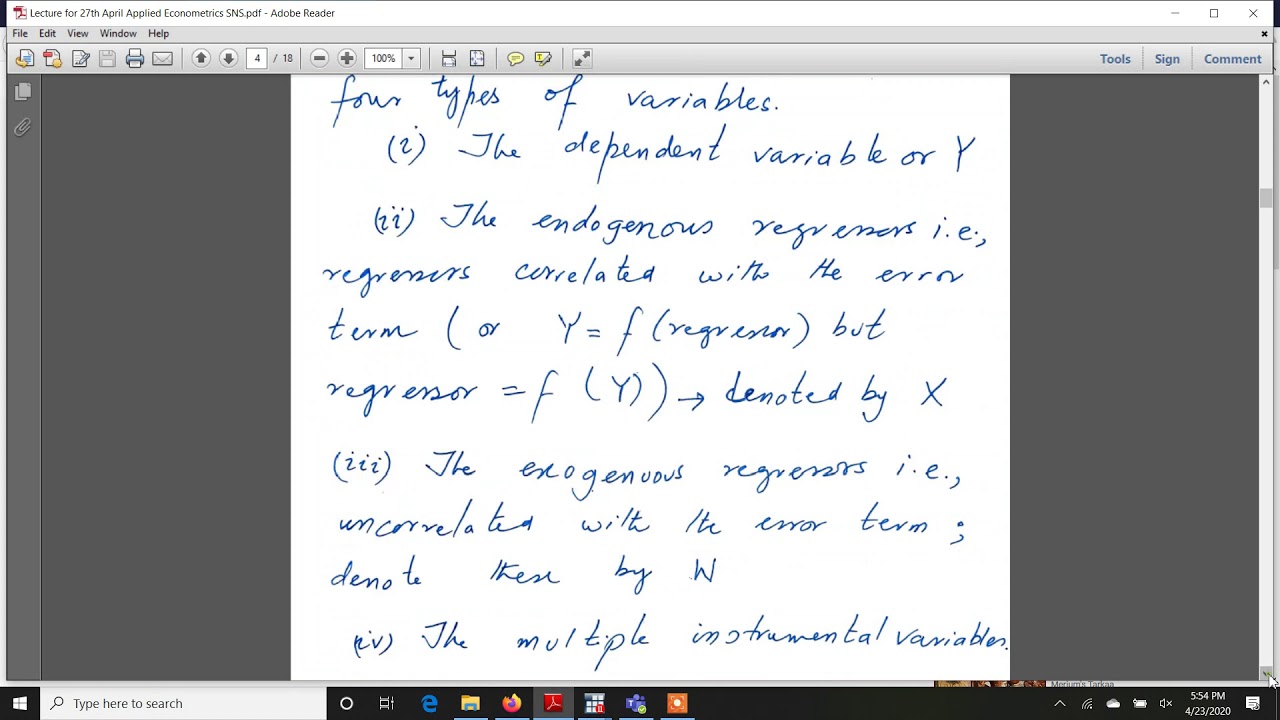 Lecture for 27th April Applied Econometrics SNS.pdf - Adobe Reader
File Edit View Window Help
4 / 18 100% Tools Sign Comment
four types of variables.
(i) The dependent variable or Y
(ii) The endogenous regressors i.e.,
regressors correlated with the error
term ( or Y = f (regressor) but
regressor = f (Y) ) → denoted by X
(iii) The exogenuous regressors i.e.,
uncorrelated with the error term ;
denote these by W
(iv) The multiple instrumental variables.
Type here to search
5:54 PM
4/23/2020